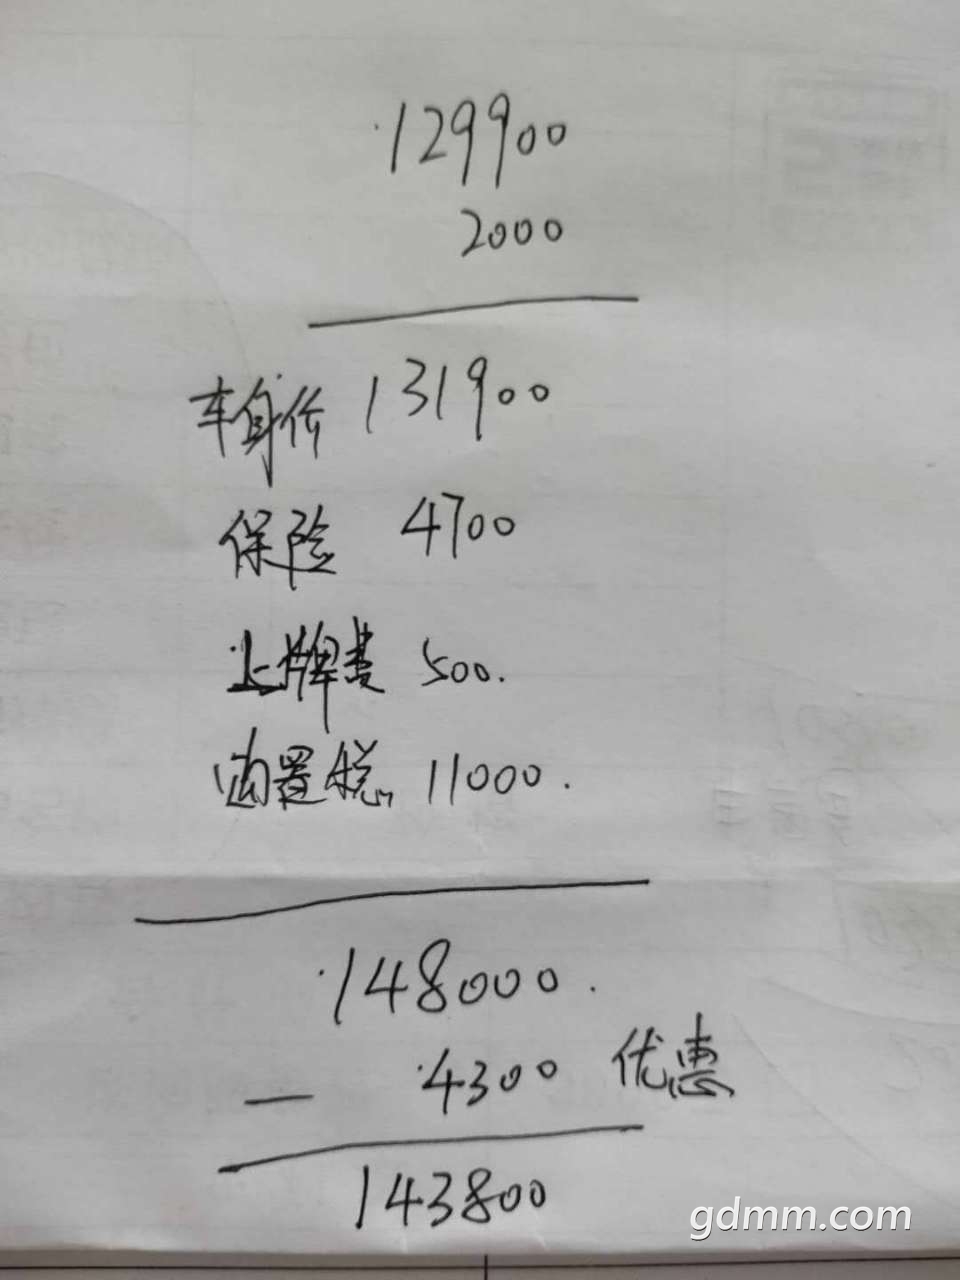 129900
2000
车身价 131900
保险 4700
上牌费 500.
购置税 11000.
148000.
— 4300 优惠
143800
gdmm.com